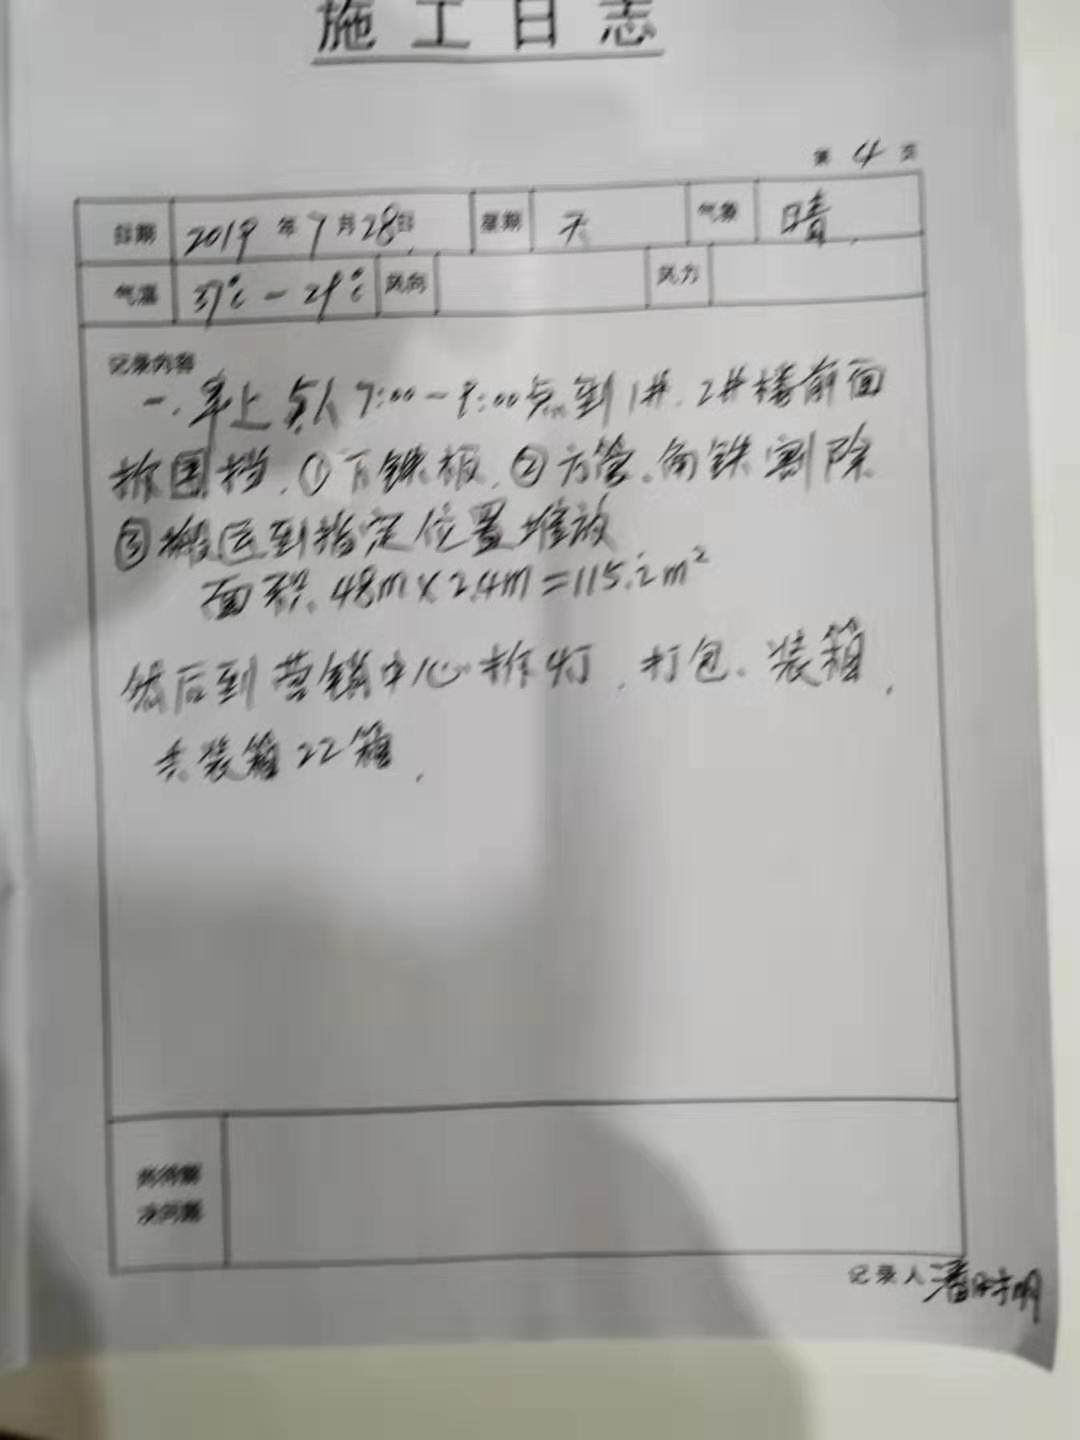 施工日志
第 4 页
日期 2019 年 7 月 28 日 星期 天 气象 晴
气温 37℃ - 29℃ 风向 风力
记录内容
一、早上5人7:00-9:00点到1#、2#楼前面
拆围挡、①下铁板、②方管、角铁割除
③搬运到指定位置堆放
面积、48m×2.4m=115.2m²
然后到营销中心拆灯、打包、装箱、
共装箱22箱、
尚待解
决问题
记录人 潘